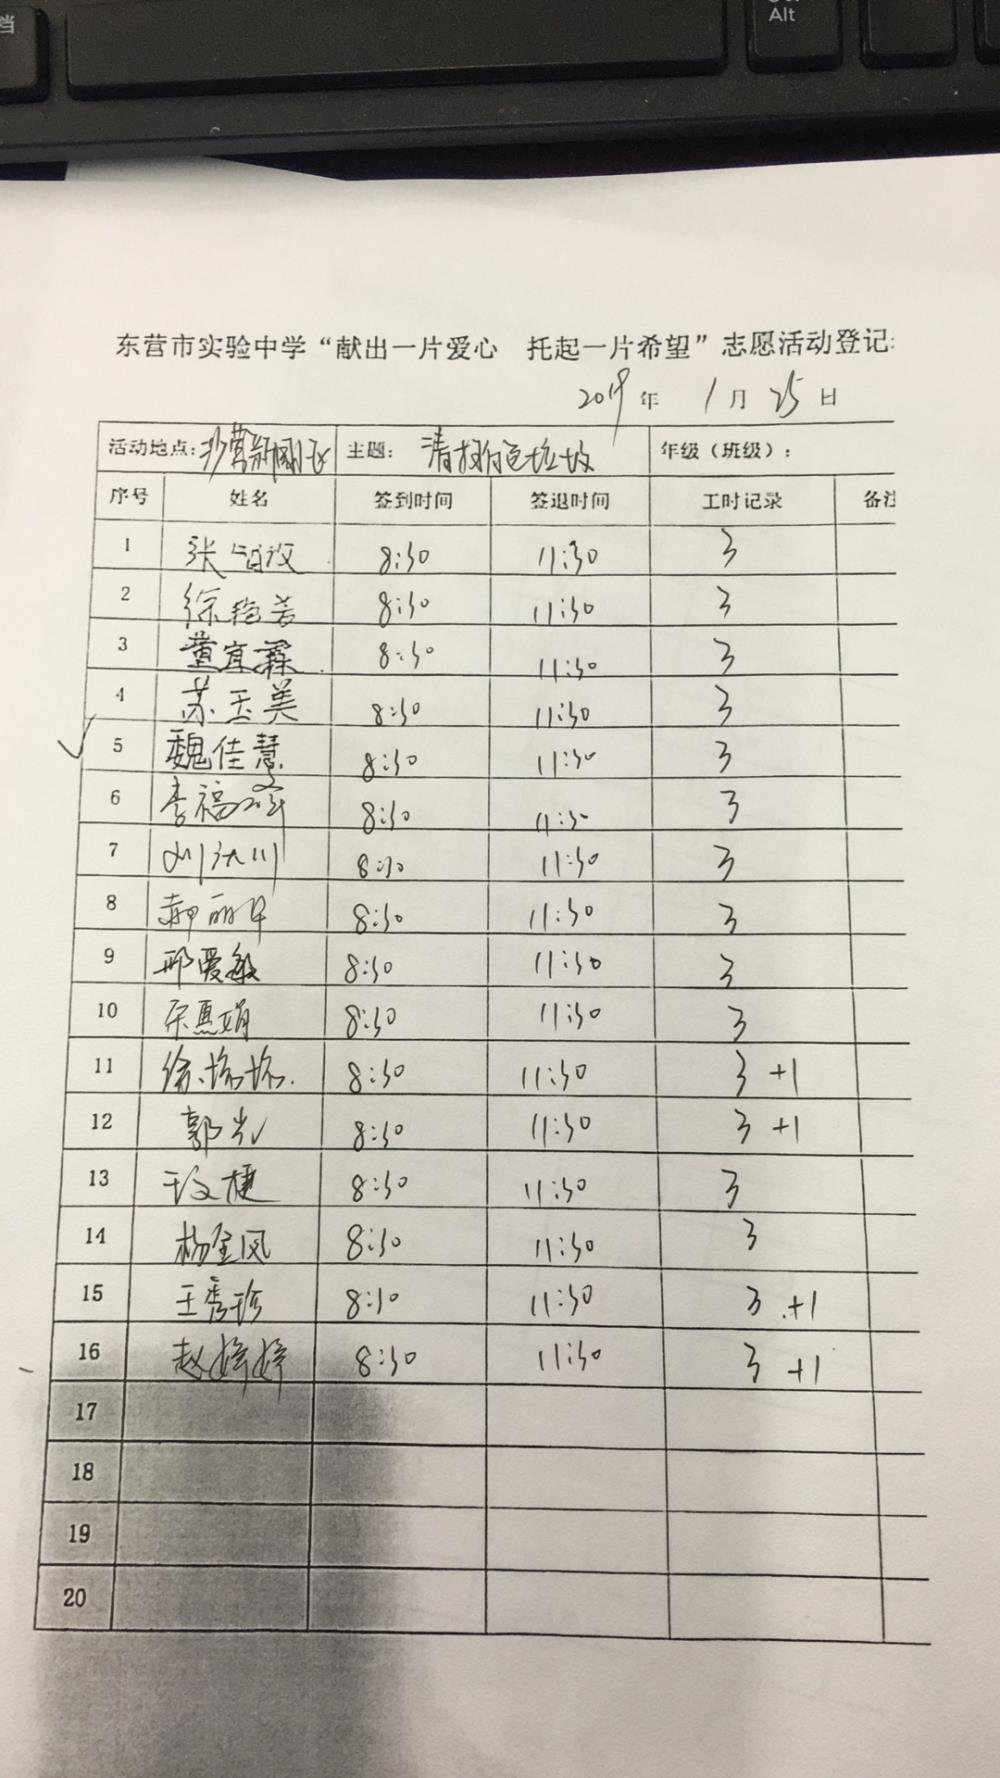 档
Alt
东营市实验中学“献出一片爱心 托起一片希望”志愿活动登记
2019年 1月 25日
活动地点: 主题: 清扫白色垃圾 年级（班级）:
序号 姓名 签到时间 签退时间 工时记录 备注
1 张 8:30 11:30 3
2 徐艳芳 8:30 11:30 3
3 董宜霖 8:30 11:30 3
4 苏玉美 8:30 11:30 3
5 魏佳慧 8:30 11:30 3
6 李福 8:30 11:30 3
7 刘 川 8:30 11:30 3
8 郝丽 8:30 11:30 3
9 邢爱敏 8:30 11:30 3
10 宋惠娟 8:30 11:30 3
11 徐 8:30 11:30 3 +1
12 郭 8:30 11:30 3 +1
13 捷 8:30 11:30 3
14 杨金凤 8:30 11:30 3
15 王秀珍 8:30 11:30 3 +1
16 赵婷婷 8:30 11:30 3 +1
17
18
19
20